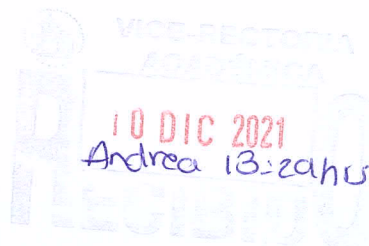 VICE-RECTORIA
ACADEMICA
10 DIC 2021
Andrea 13:29hrs
RECIBIDO